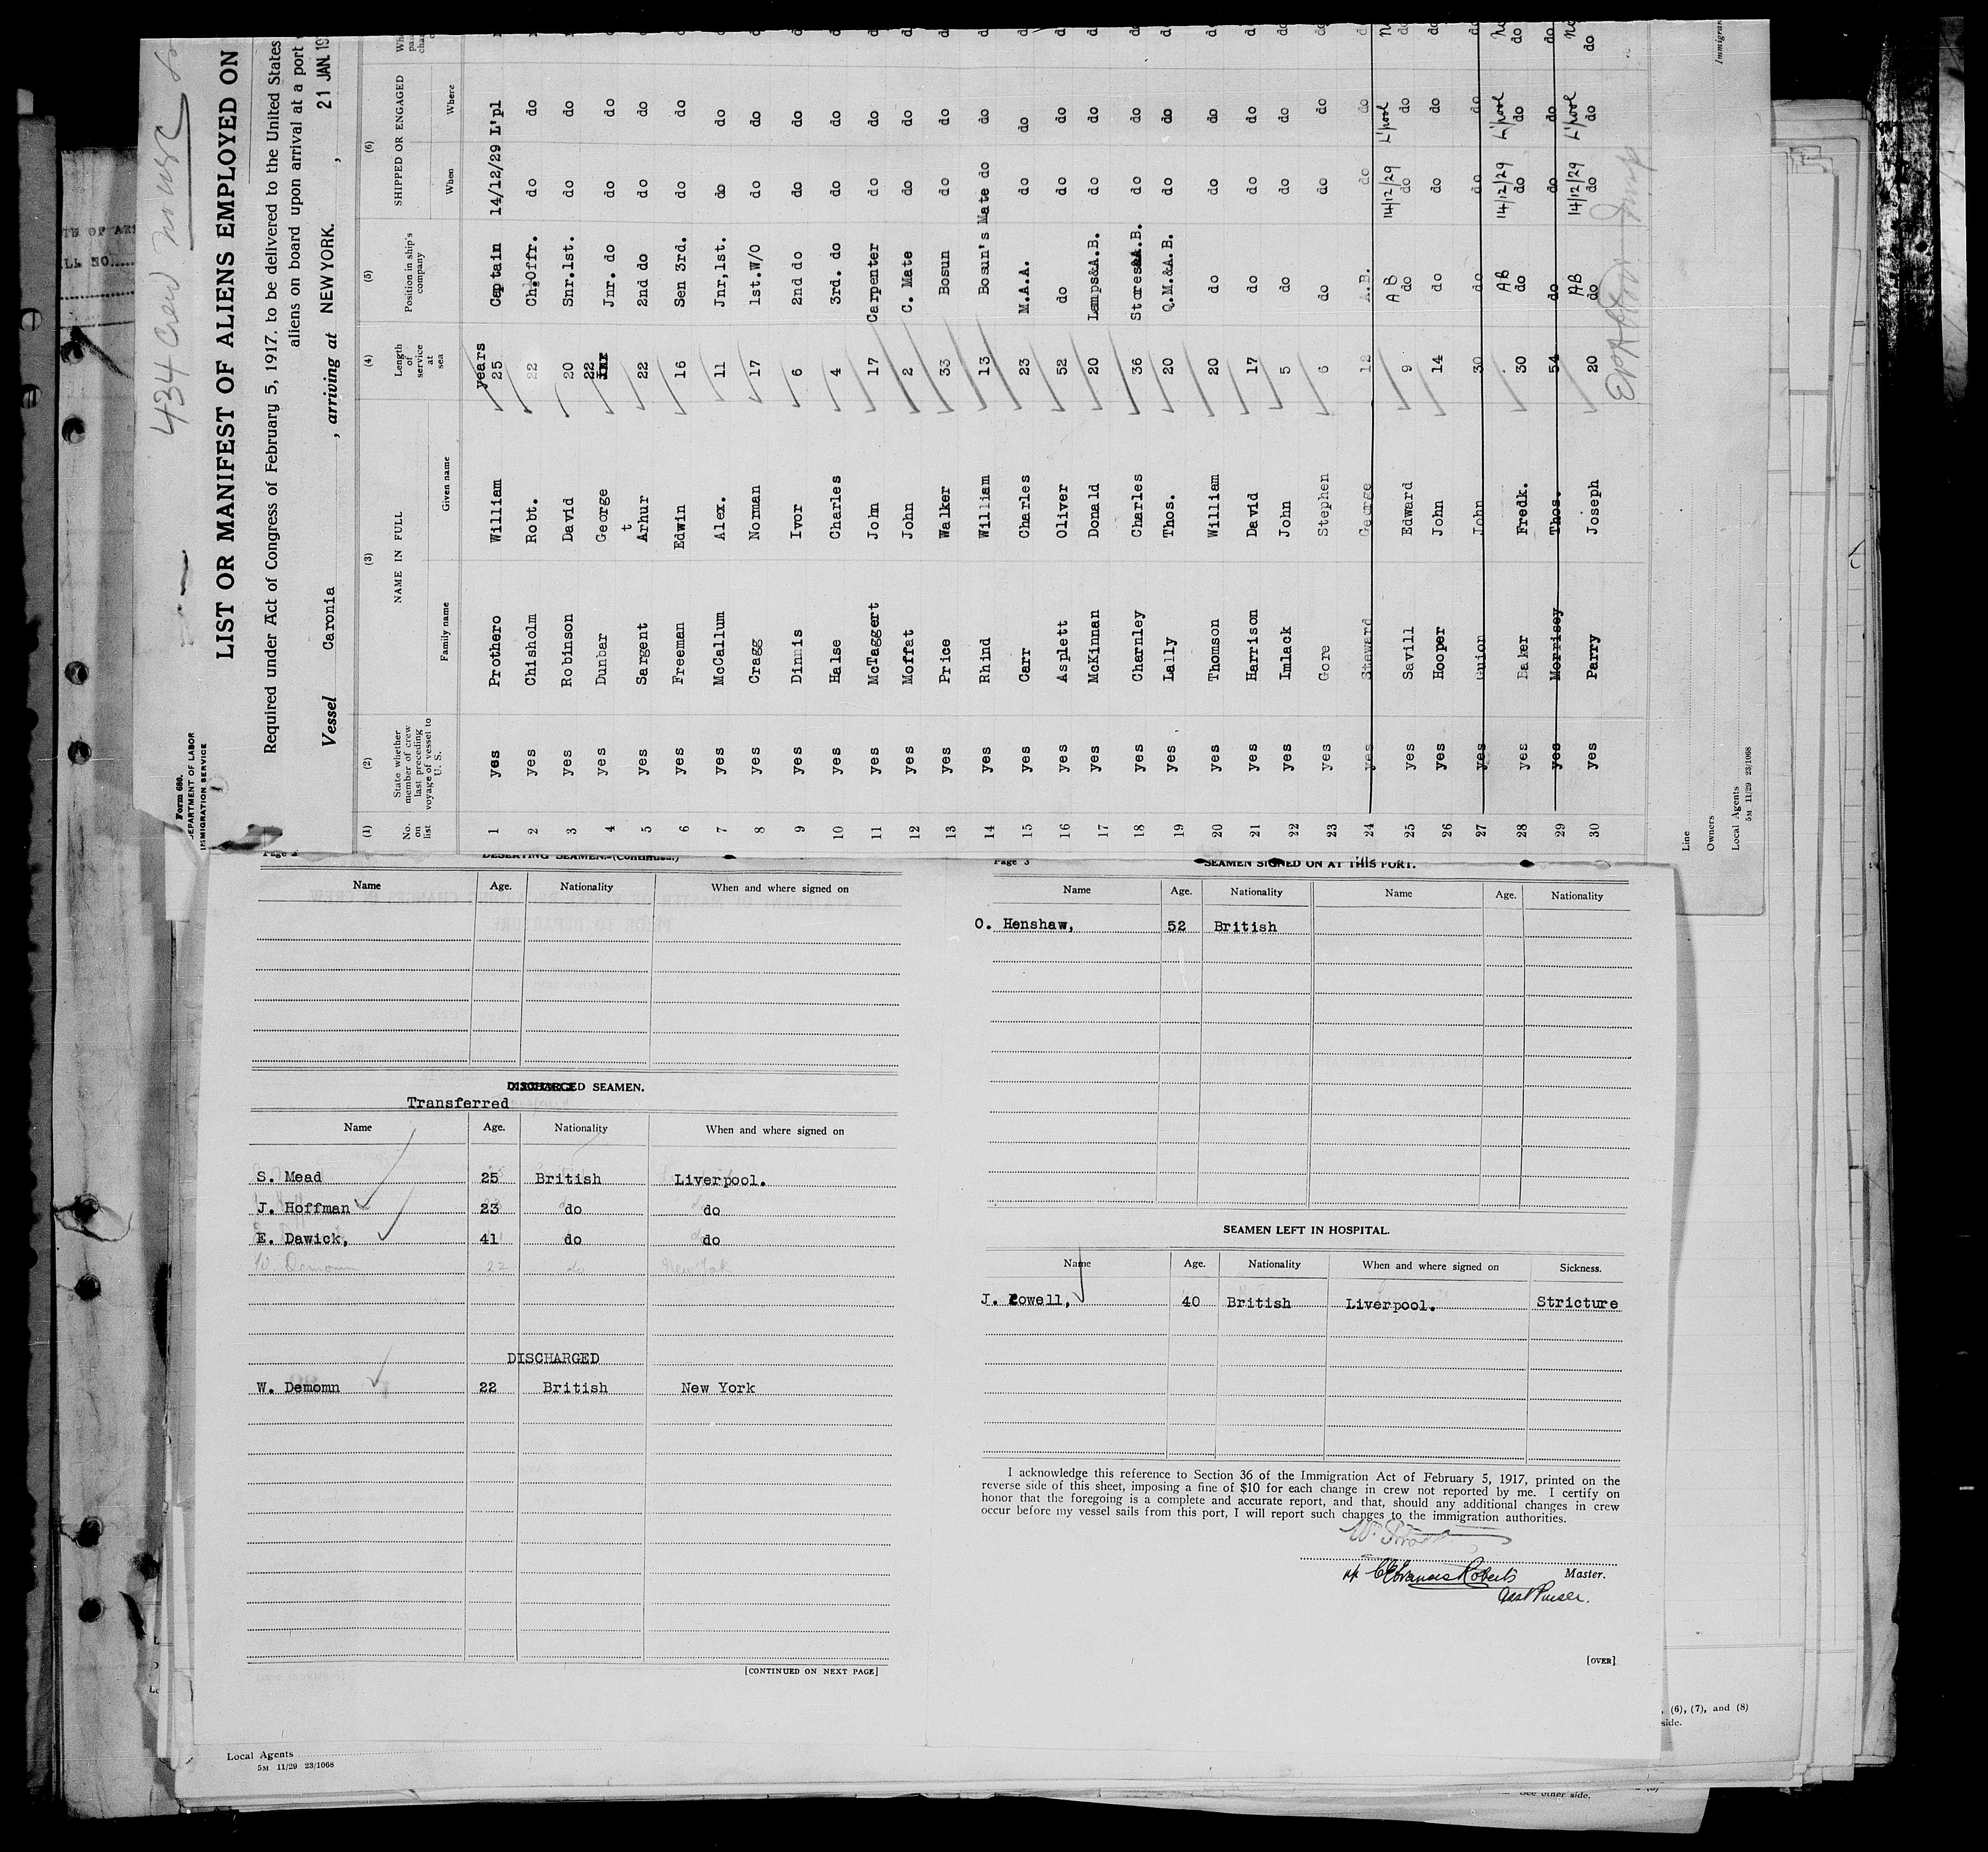 434 Crew
Form 680.
DEPARTMENT OF LABOR
IMMIGRATION SERVICE
LIST OR MANIFEST OF ALIENS EMPLOYED ON
Required under Act of Congress of February 5, 1917, to be delivered to the United States
aliens on board upon arrival at a port
Vessel Caronia , arriving at NEW YORK. , 21 JAN. 19
(1) (2) (3) (4) (5) (6)
No. on list State whether member of crew last preceding voyage of vessel to U. S. NAME IN FULL Length of service at sea Position in ship's company SHIPPED OR ENGAGED
Family name Given name When Where
years
1 yes Prothero William 25 Captain 14/12/29 L'pl
2 yes Chisholm Robt. 22 Ch.Offr. do do
3 yes Robinson David 20 Snr.1st. do do
4 yes Dunbar George 22 Jnr. do do do
5 yes Sargent Arhur t 22 2nd do do do
6 yes Freeman Edwin 16 Sen 3rd. do do
7 yes McCallum Alex. 11 Jnr,1st. do do
8 yes Cragg Norman 17 1st.W/O do do
9 yes Dinnis Ivor 6 2nd do do do
10 yes Halse Charles 4 3rd. do do do
11 yes McTaggert John 17 Carpenter do do
12 yes Moffat John 2 C. Mate do do
13 yes Price Walker 33 Bosun do do
14 yes Rhind William 13 Bosun's Mate do do
15 yes Carr Charles 23 M.A.A. do do
16 yes Asplett Oliver 52 do do do
17 yes McKinnan Donald 20 Lamps&A.B. do do
18 yes Charnley Charles 36 Stores&A.B. do do
19 yes Lally Thos. 20 Q.M.&A.B. do do
20 yes Thomson William 20 do do do
21 yes Harrison David 17 do do do
22 yes Imlack John 5 do do do
23 yes Gore Stephen 6 do do do
24 yes Steward George 12 A.B. do do
25 yes Savill Edward 9 A B do 14/12/29 do L'pool do
26 yes Hooper John 14 do do do
27 yes Guion John 30 do do do
28 yes Baker Fredk. 30 AB do 14/12/29 do L'pool do
29 yes Morrisey Thos. 54 do do do
30 yes Parry Joseph 20 AB do 14/12/29 do L'pool do
Line
Owners
Local Agents
5M 11/29 23/1068
Immigran
DESERTING SEAMEN.-(Continued.)
Name Age. Nationality When and where signed on
DISCHARGED SEAMEN.
Transferred
Name Age. Nationality When and where signed on
S. Mead 25 British Liverpool.
J. Hoffman 23 do do
E. Dawick, 41 do do
W. Demomn 22 do New York
DISCHARGED
W. Demomn 22 British New York
[CONTINUED ON NEXT PAGE]
Local Agents
5M 11/29 23/1068
Page 3 SEAMEN SIGNED ON AT THIS PORT.
Name Age. Nationality Name Age. Nationality
O. Henshaw, 52 British
SEAMEN LEFT IN HOSPITAL.
Name Age. Nationality When and where signed on Sickness.
J. Powell, 40 British Liverpool. Stricture
I acknowledge this reference to Section 36 of the Immigration Act of February 5, 1917, printed on the
reverse side of this sheet, imposing a fine of $10 for each change in crew not reported by me. I certify on
honor that the foregoing is a complete and accurate report, and that, should any additional changes in crew
occur before my vessel sails from this port, I will report such changes to the immigration authorities.
Roberts Master.
Purser.
[OVER]
(6), (7), and (8)
side.
See other side.